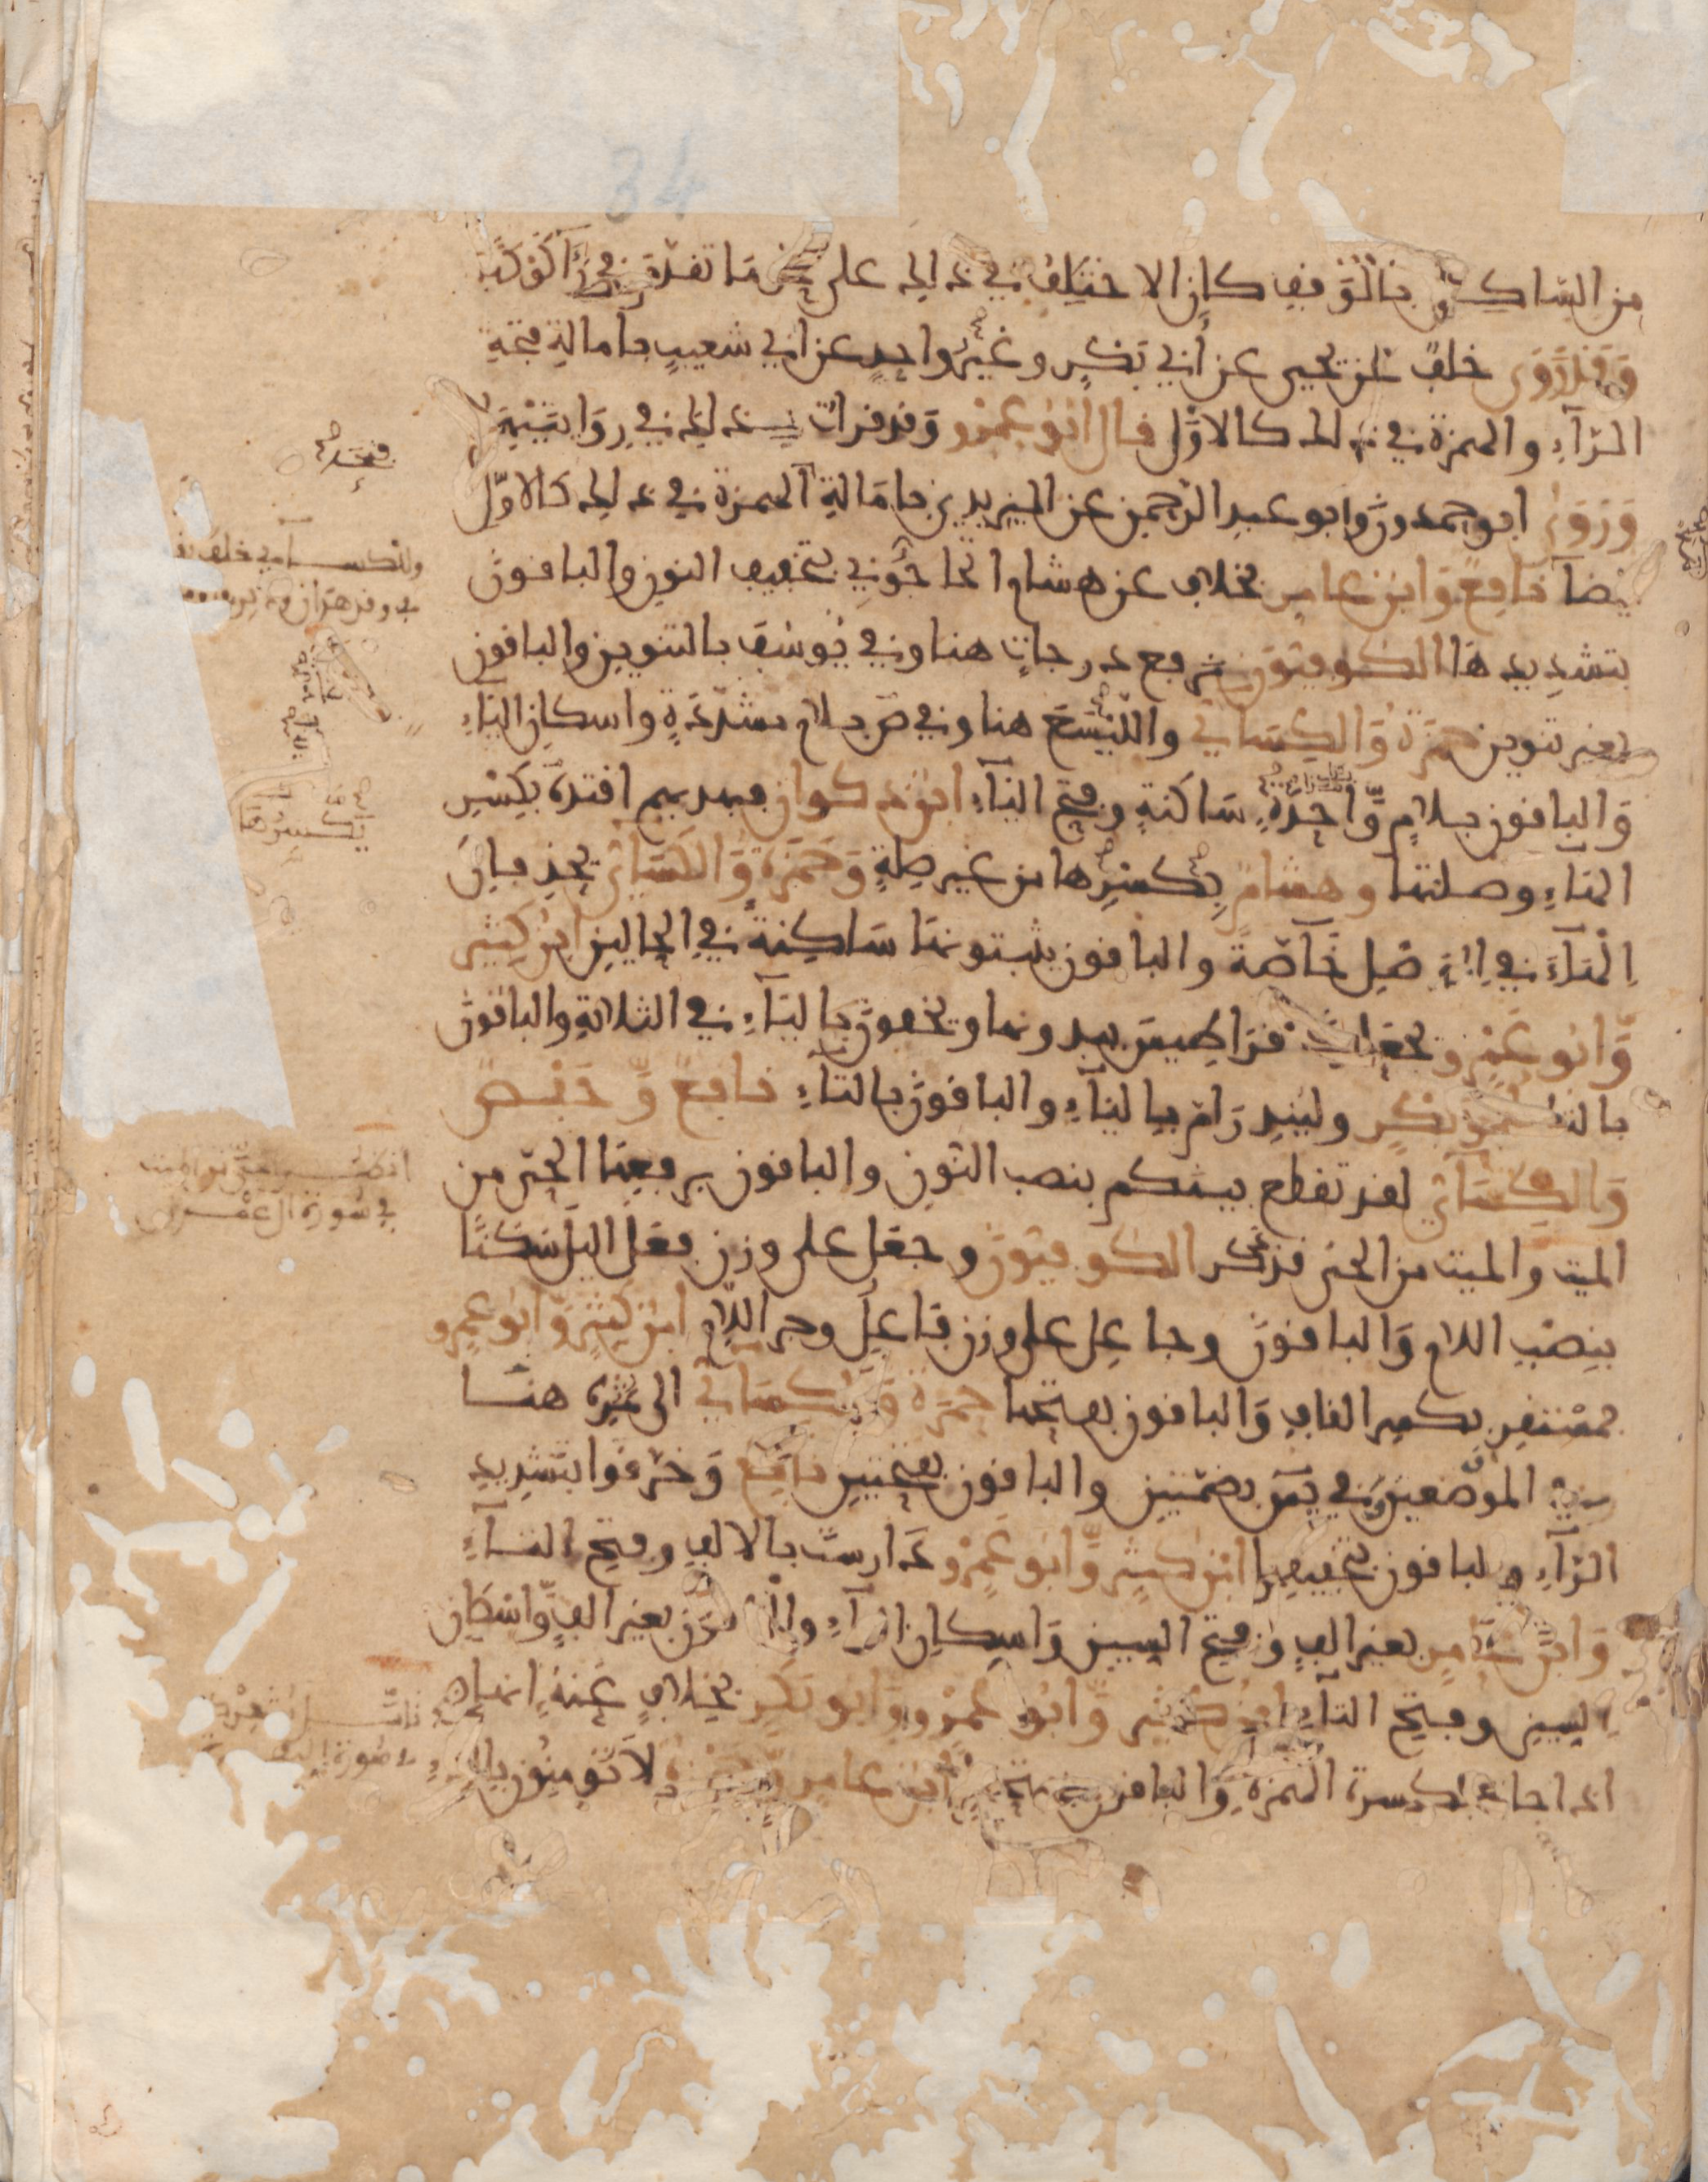 من الساكن بالوقف كان الاختلف في ذلك على نحو ما تقدم في رءا كوكبا
وقد روى خلف عن يحيى عن أبي بكر وغير واحد عن ابي شعيب بامالة فتحة
الراء والهمزة في ذلك كالاول قال ابو عمرو وقد قرات بذلك في روايتيهما
وروى ابو حمدون وابو عبد الرحمن عن اليزيدي بامالة الهمزة في ذلك كالاول
ايضا نافع وابن عامر بخلاف عن هشام اتحاجوني بتخفيف النون والباقون
بتشديدها الكوفيون نرفع درجات هنا وفي يوسف بالتنوين والباقون
بغير تنوين حمزة والكسائي والليسع هنا وفي ص بلام مشددة واسكان الياء
والباقون بلام واحدة ساكنة وفتح الياء ابن ذكوان فبهديهم اقتده بكسر
الهاء وصلتها وهشام بكسرها من غير صلة وحمزة والكسائي بحذفان
الهاء في الوصل خاصة والباقون يثبتونها ساكنة في الحالين ابن كثير
وابو عمرو يجعلونه قراطيس يبدونها ويخفون بالياء في الثلاثة والباقون
بالتاء ابو بكر ولينذر ام بالياء والباقون بالتاء نافع وحفص
والكسائي لقد تقطع بينكم بنصب النون والباقون برفعها الحي من
الميت والميت من الحي قد ذكر الكوفيون وجعل على وزن فعل اليل سكنا
بنصب اللام والباقون وجاعل على وزن فاعل وجر اللام ابن كثير وابو عمرو
فمستقر بكسر القاف والباقون بفتحها حمزة والكسائي الى ثمره هنا
في الموضعين وفي يس بضمتين والباقون بفتحتين نافع وخرقوا بتشديد
الراء والباقون بتخفيفها ابن كثير وابو عمرو دارست بالالف وفتح التاء
وابن عامر بغير الف وفتح السين واسكان التاء والباقون بغير الف واسكان
السين وفتح التاء ابن كثير وابو عمرو وابو بكر بخلاف عنه انها
اذا جاءت بكسرة الهمزة والباقون بفتحها ابن عامر وحمزة لا تومنون بالتاء
فتحة
وللكسائي خلف
وقد هدان
بكسرها
في سورة ال عمران